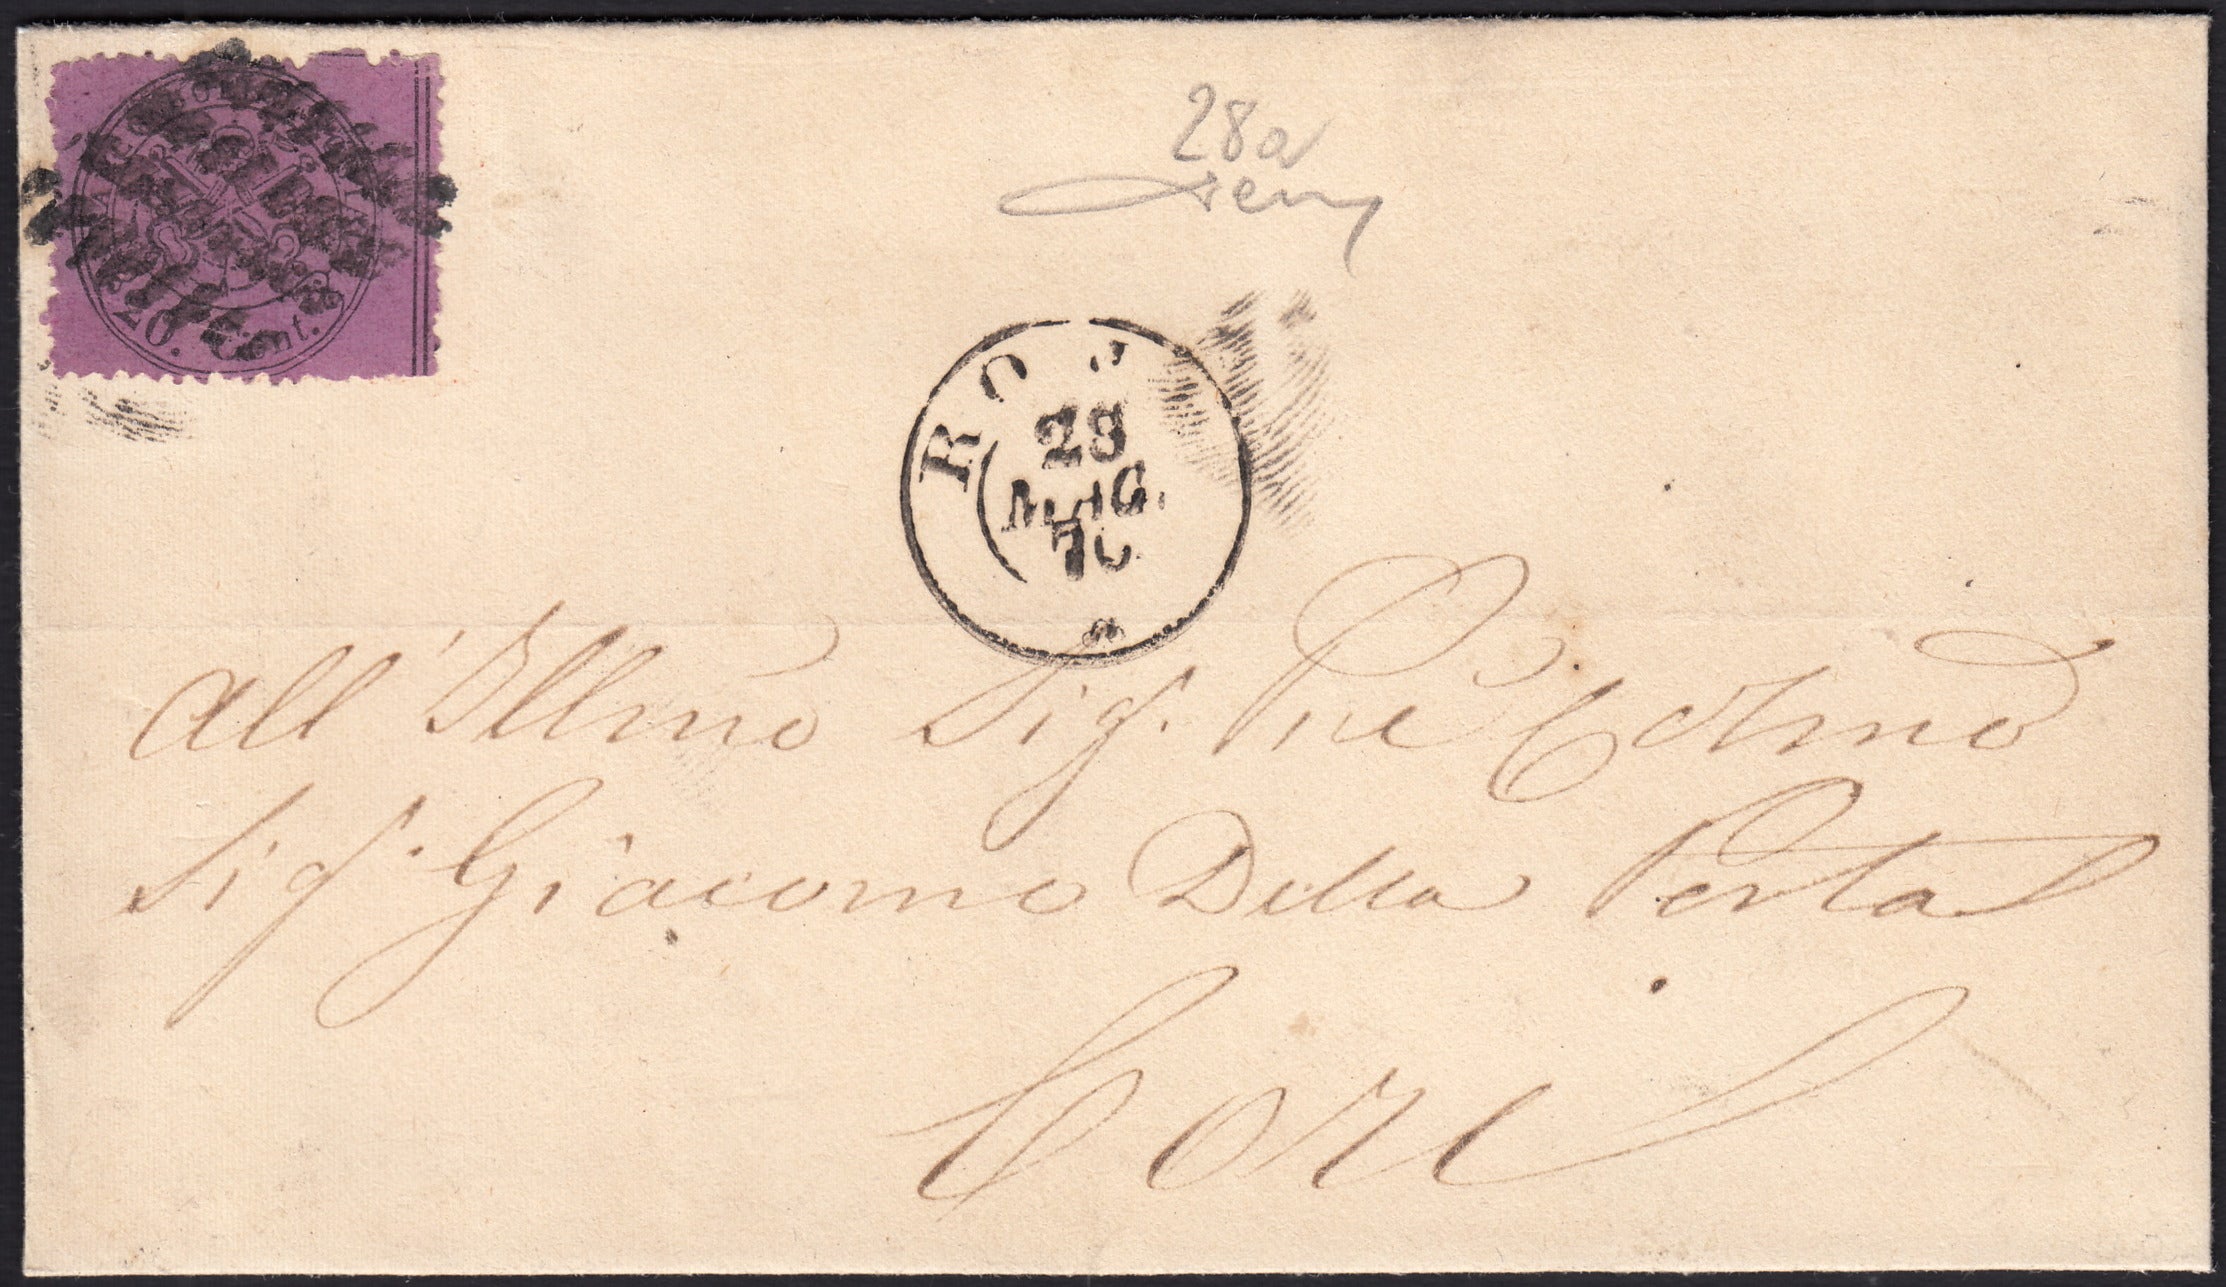 20. Cent.
28a
RO
28
AUG.
70
All'Illmo Sig. Pne Colmo
Sig. Giacomo Della Porta
Cori